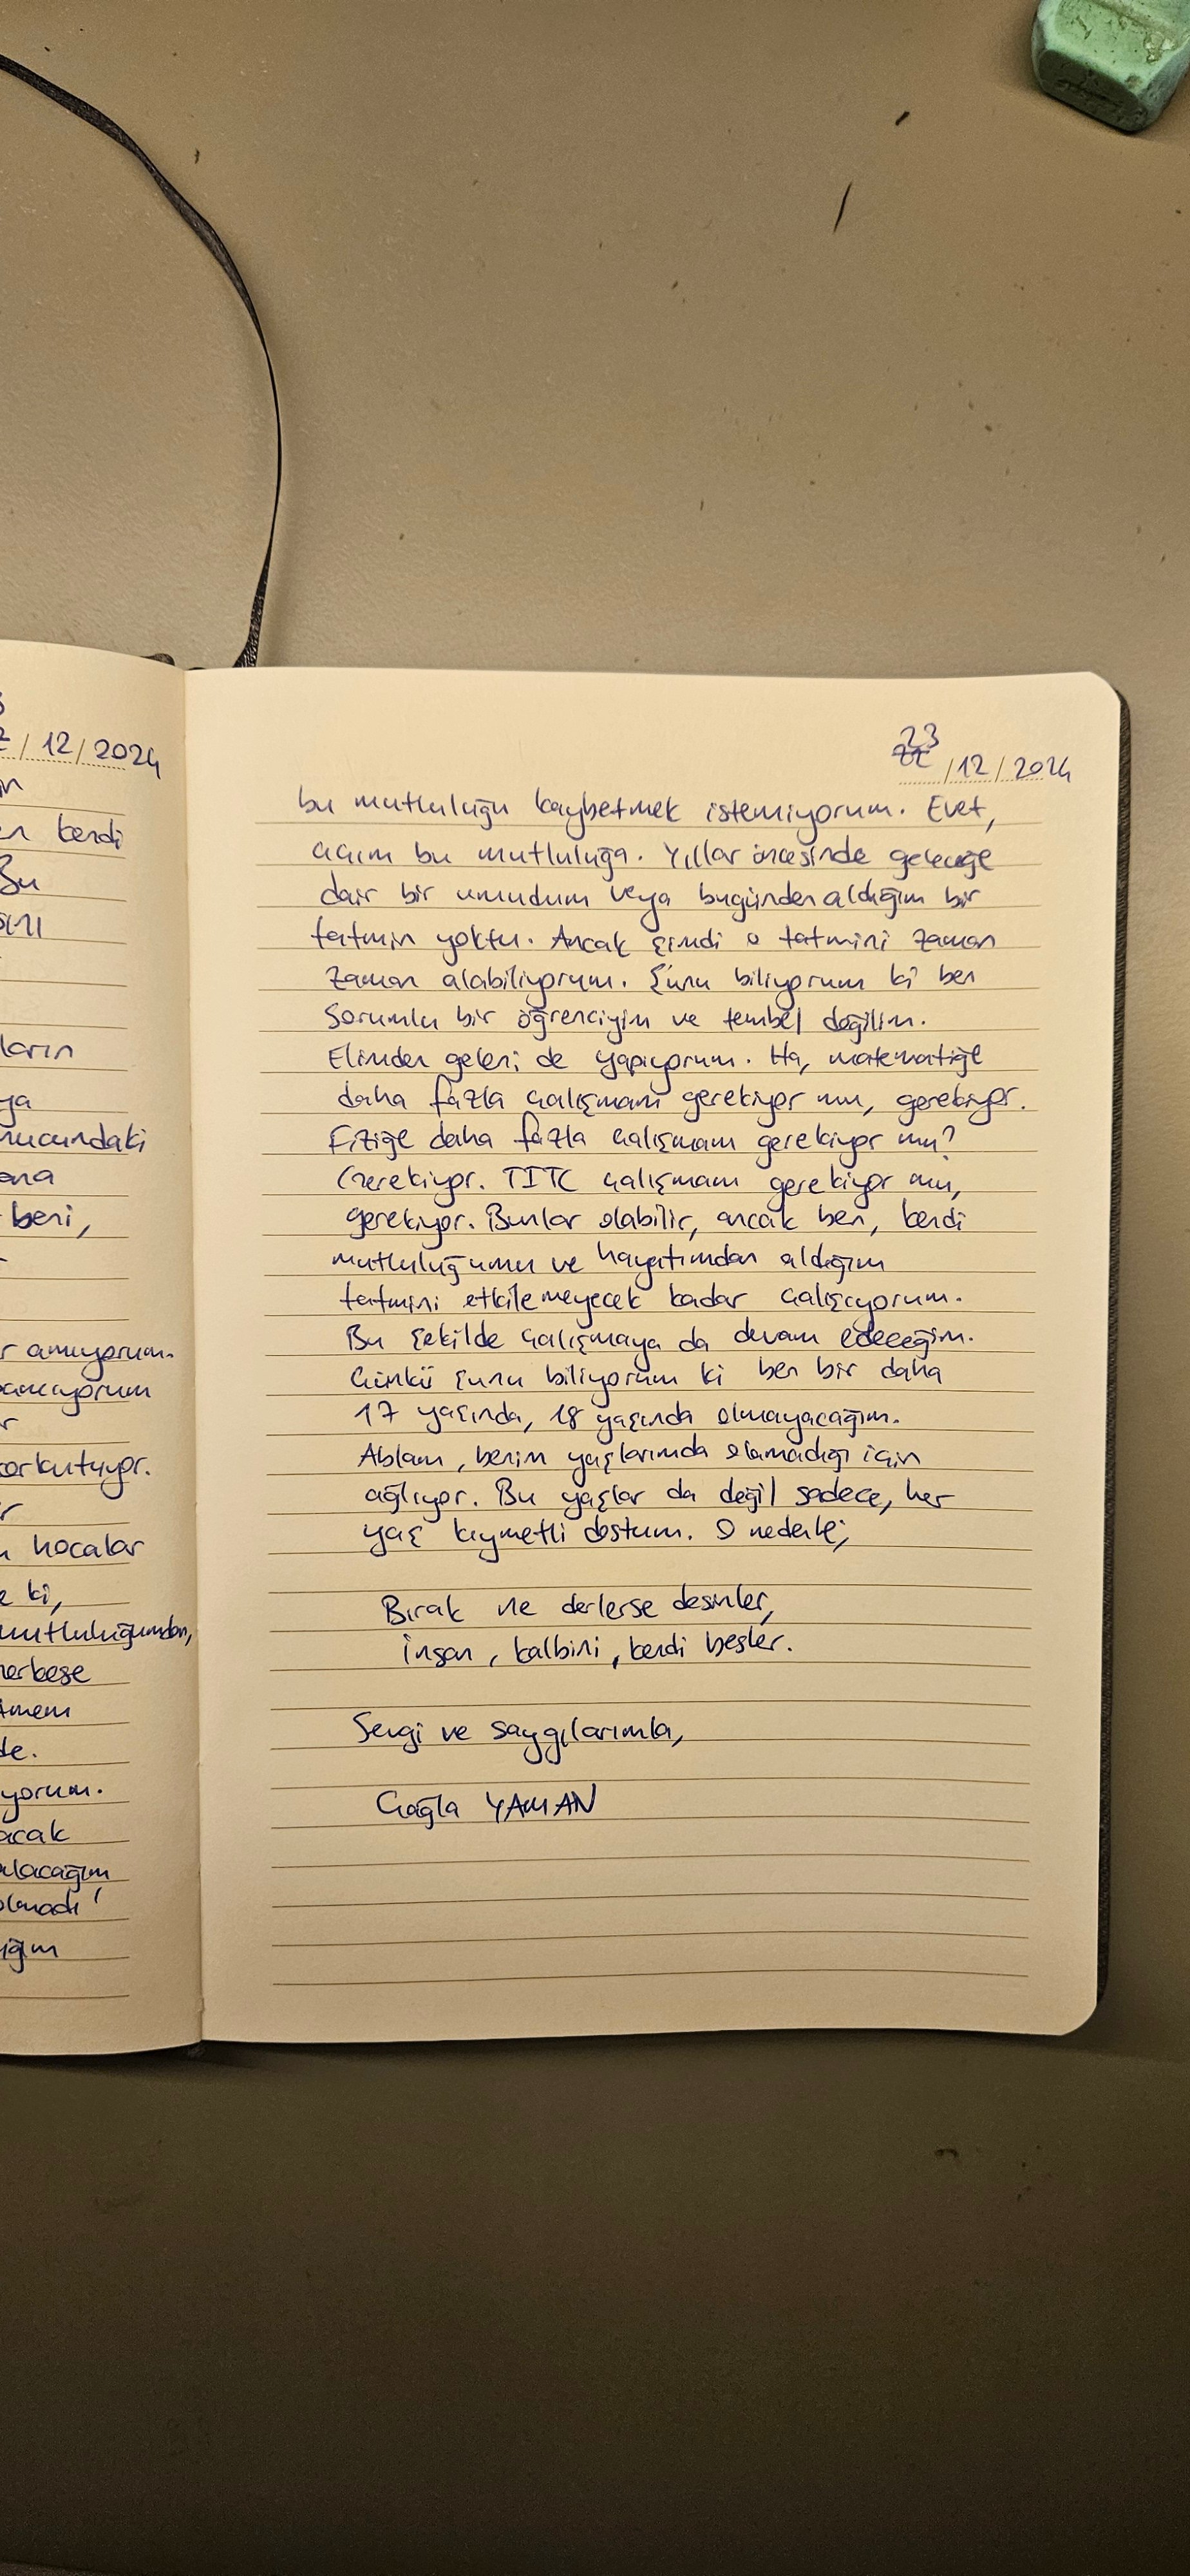 /12/2024
kendi
Bu
ların
ya
nucundaki
ana
beni,
korkutuyor.
hocalar
ki,
mutluluğumdan,
herkese
de.
yorum.
acak
olacağım
olmadı'
23
22/12/2024
bu mutluluğu kaybetmek istemiyorum. Evet,
açım bu mutluluğa. Yıllar öncesinde geleceğe
dair bir umudum veya bugünden aldığım bir
tatmin yoktu. Ancak şimdi o tatmini zaman
zaman alabiliyorum. Şunu biliyorum ki ben
sorumlu bir öğrenciyim ve tembel değilim.
Elimden geleni de yapıyorum. Ha, matematiğe
daha fazla çalışmam gerekiyor mu, gerekiyor.
Fiziğe daha fazla çalışmam gerekiyor mu?
Gerekiyor. TITC çalışmam gerekiyor mu,
gerekiyor. Bunlar olabilir, ancak ben, kendi
mutluluğumu ve hayatımdan aldığım
tatmini etkilemeyecek kadar çalışıyorum.
Bu şekilde çalışmaya da devam edeceğim.
Çünkü şunu biliyorum ki ben bir daha
17 yaşında, 18 yaşında olmayacağım.
Ablam, benim yaşlarımda olamadığı için
ağlıyor. Bu yaşlar da değil sadece, her
yaş kıymetli dostum. O nedenle;
Bırak ne derlerse desinler,
İnsan, kalbini, kendi besler.
Sevgi ve saygılarımla,
Çağla YAMAN